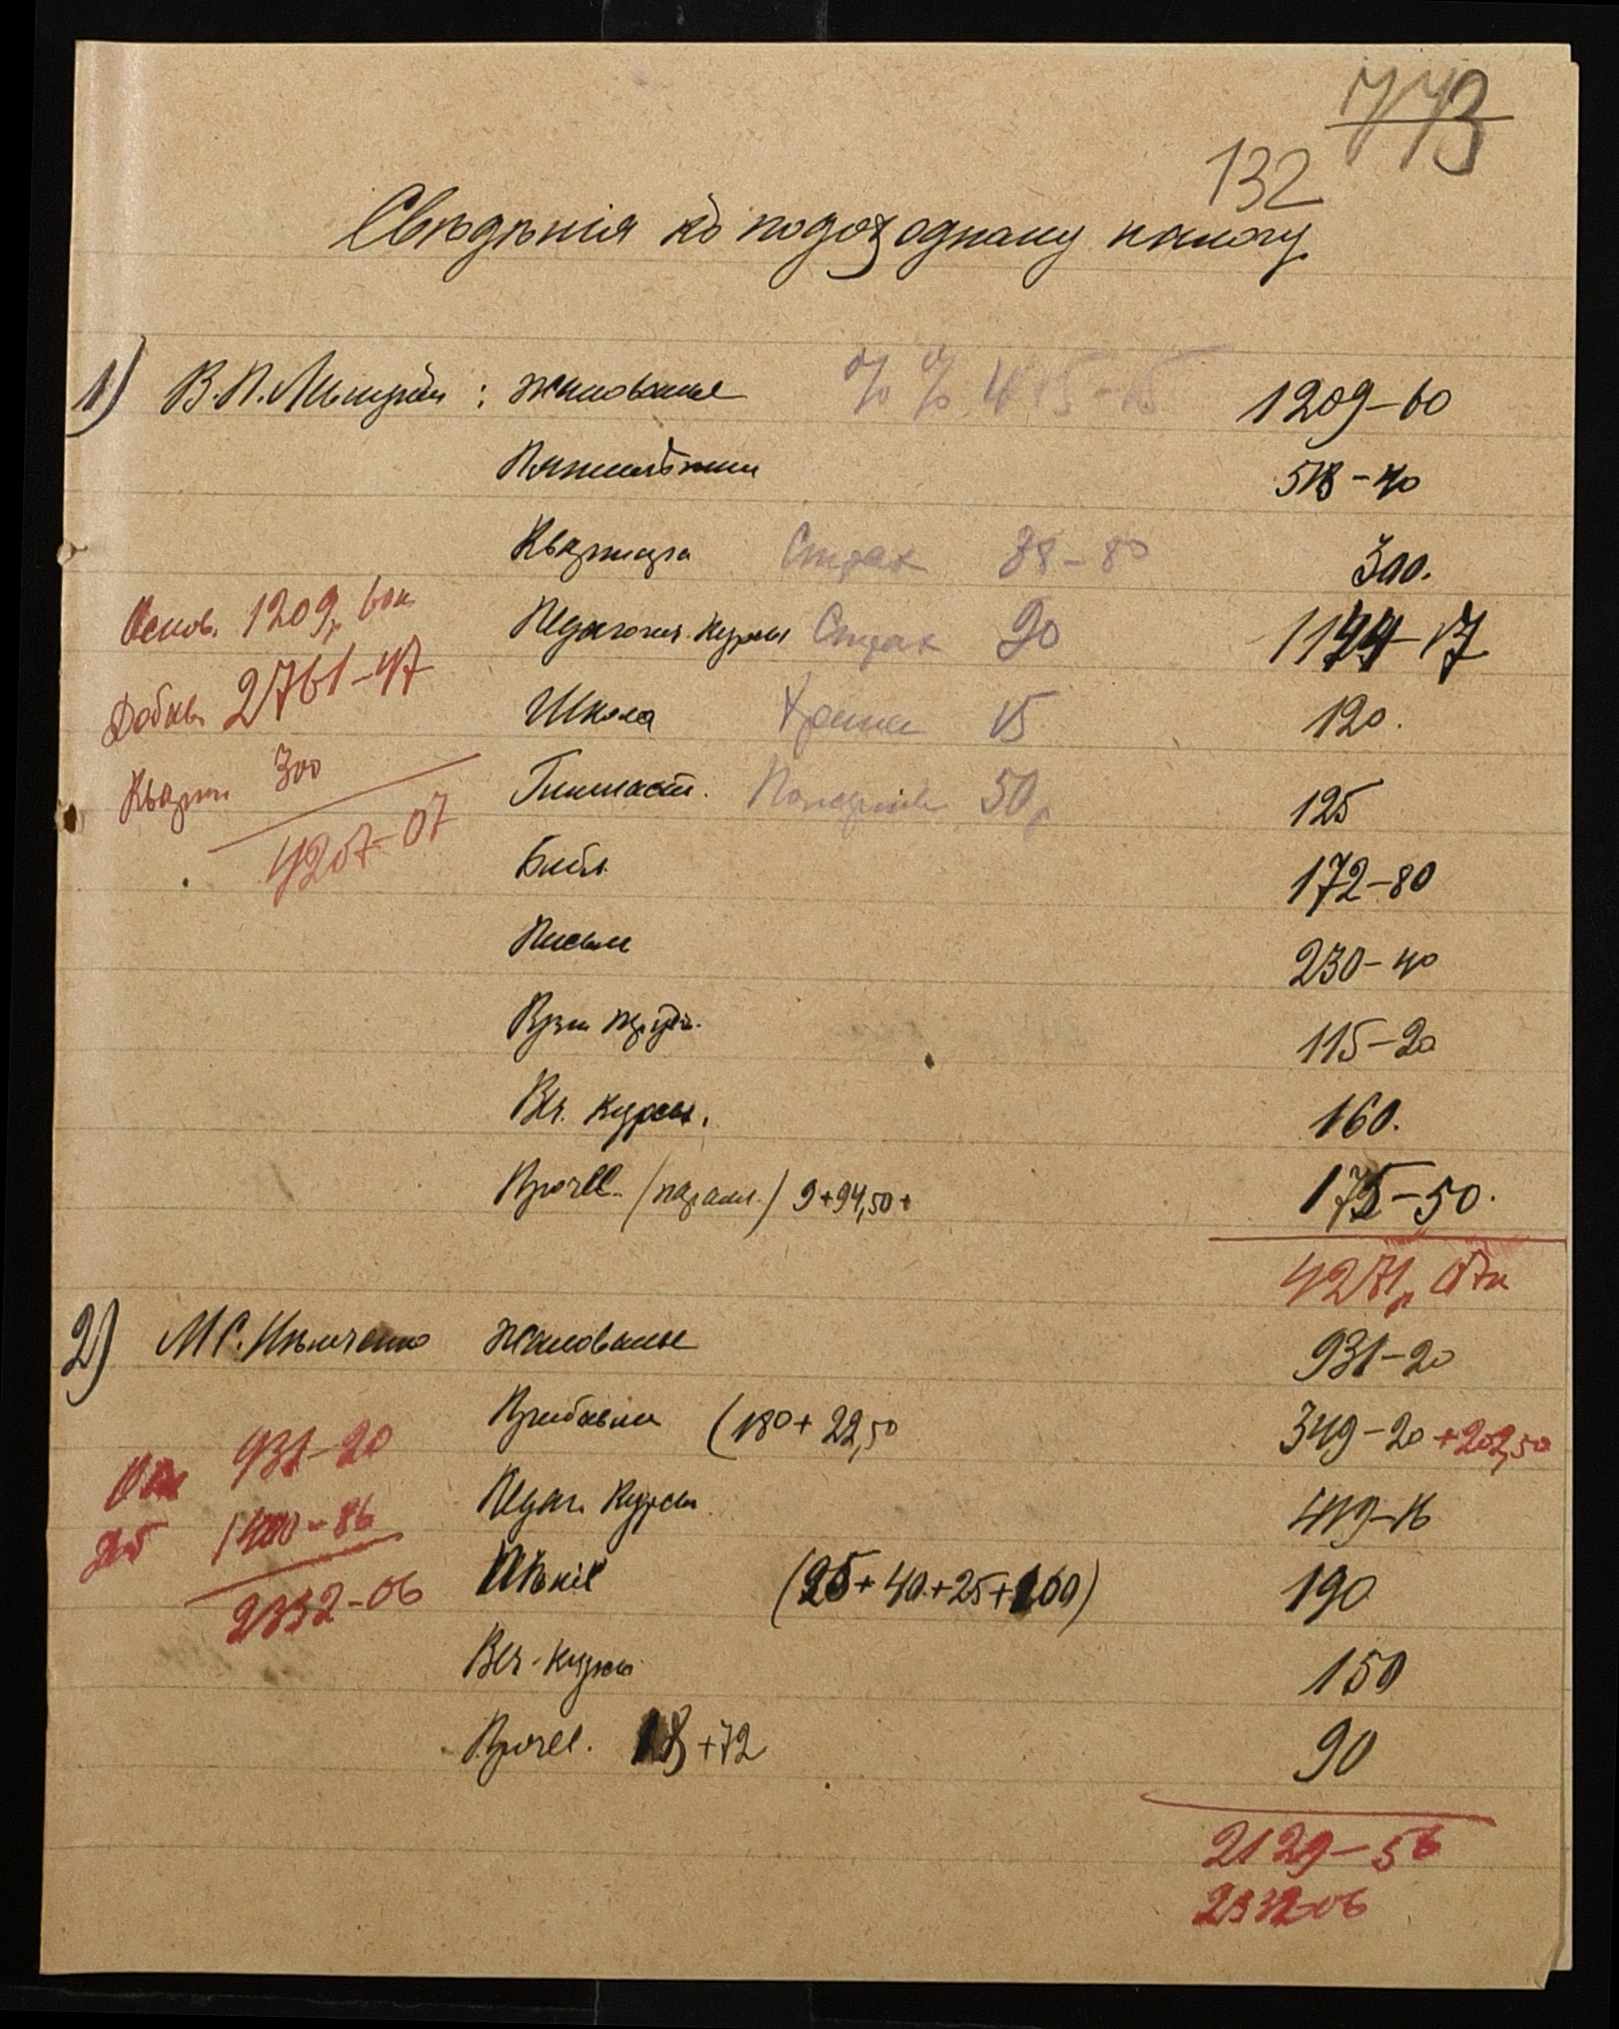 773
132
Свѣдѣнія къ подоходному налогу
1) В. П. : жалованье %% 415-15 1209-60
Пятилѣтки 518-40
Квартира Страх 38-80 300.
Педагогич. курсы Страх 20 1144-17
Основ. 1209р 60к
Школа 15 120.
Добав 2761-47
Гимнаст. 50р 125
Кварти 300
4207-07
Библ. 172-80
Письм 230-40
115-20
Веч. курсы. 160.
Прочее (парал.) 9+94,50+ 175-50.
4271р 07к
2) М С. Ильченко жалованье 931-20
Прибавки (180+22,50 349-20+202,50
931-20
Педаг. курсы 419-16
1400-86
Пѣніе (25+40+25+100) 190
2332-06
Веч. курсы 150
Прочее. 18+72 90
2129-56
2332-06